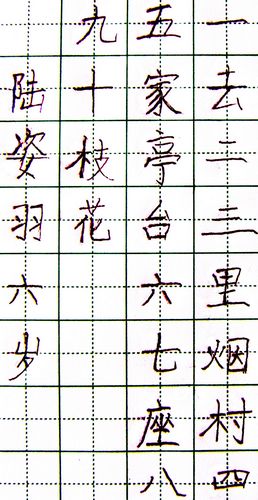 一去二三里烟村四
五家亭台六七座八
九十枝花
陆姿羽六岁